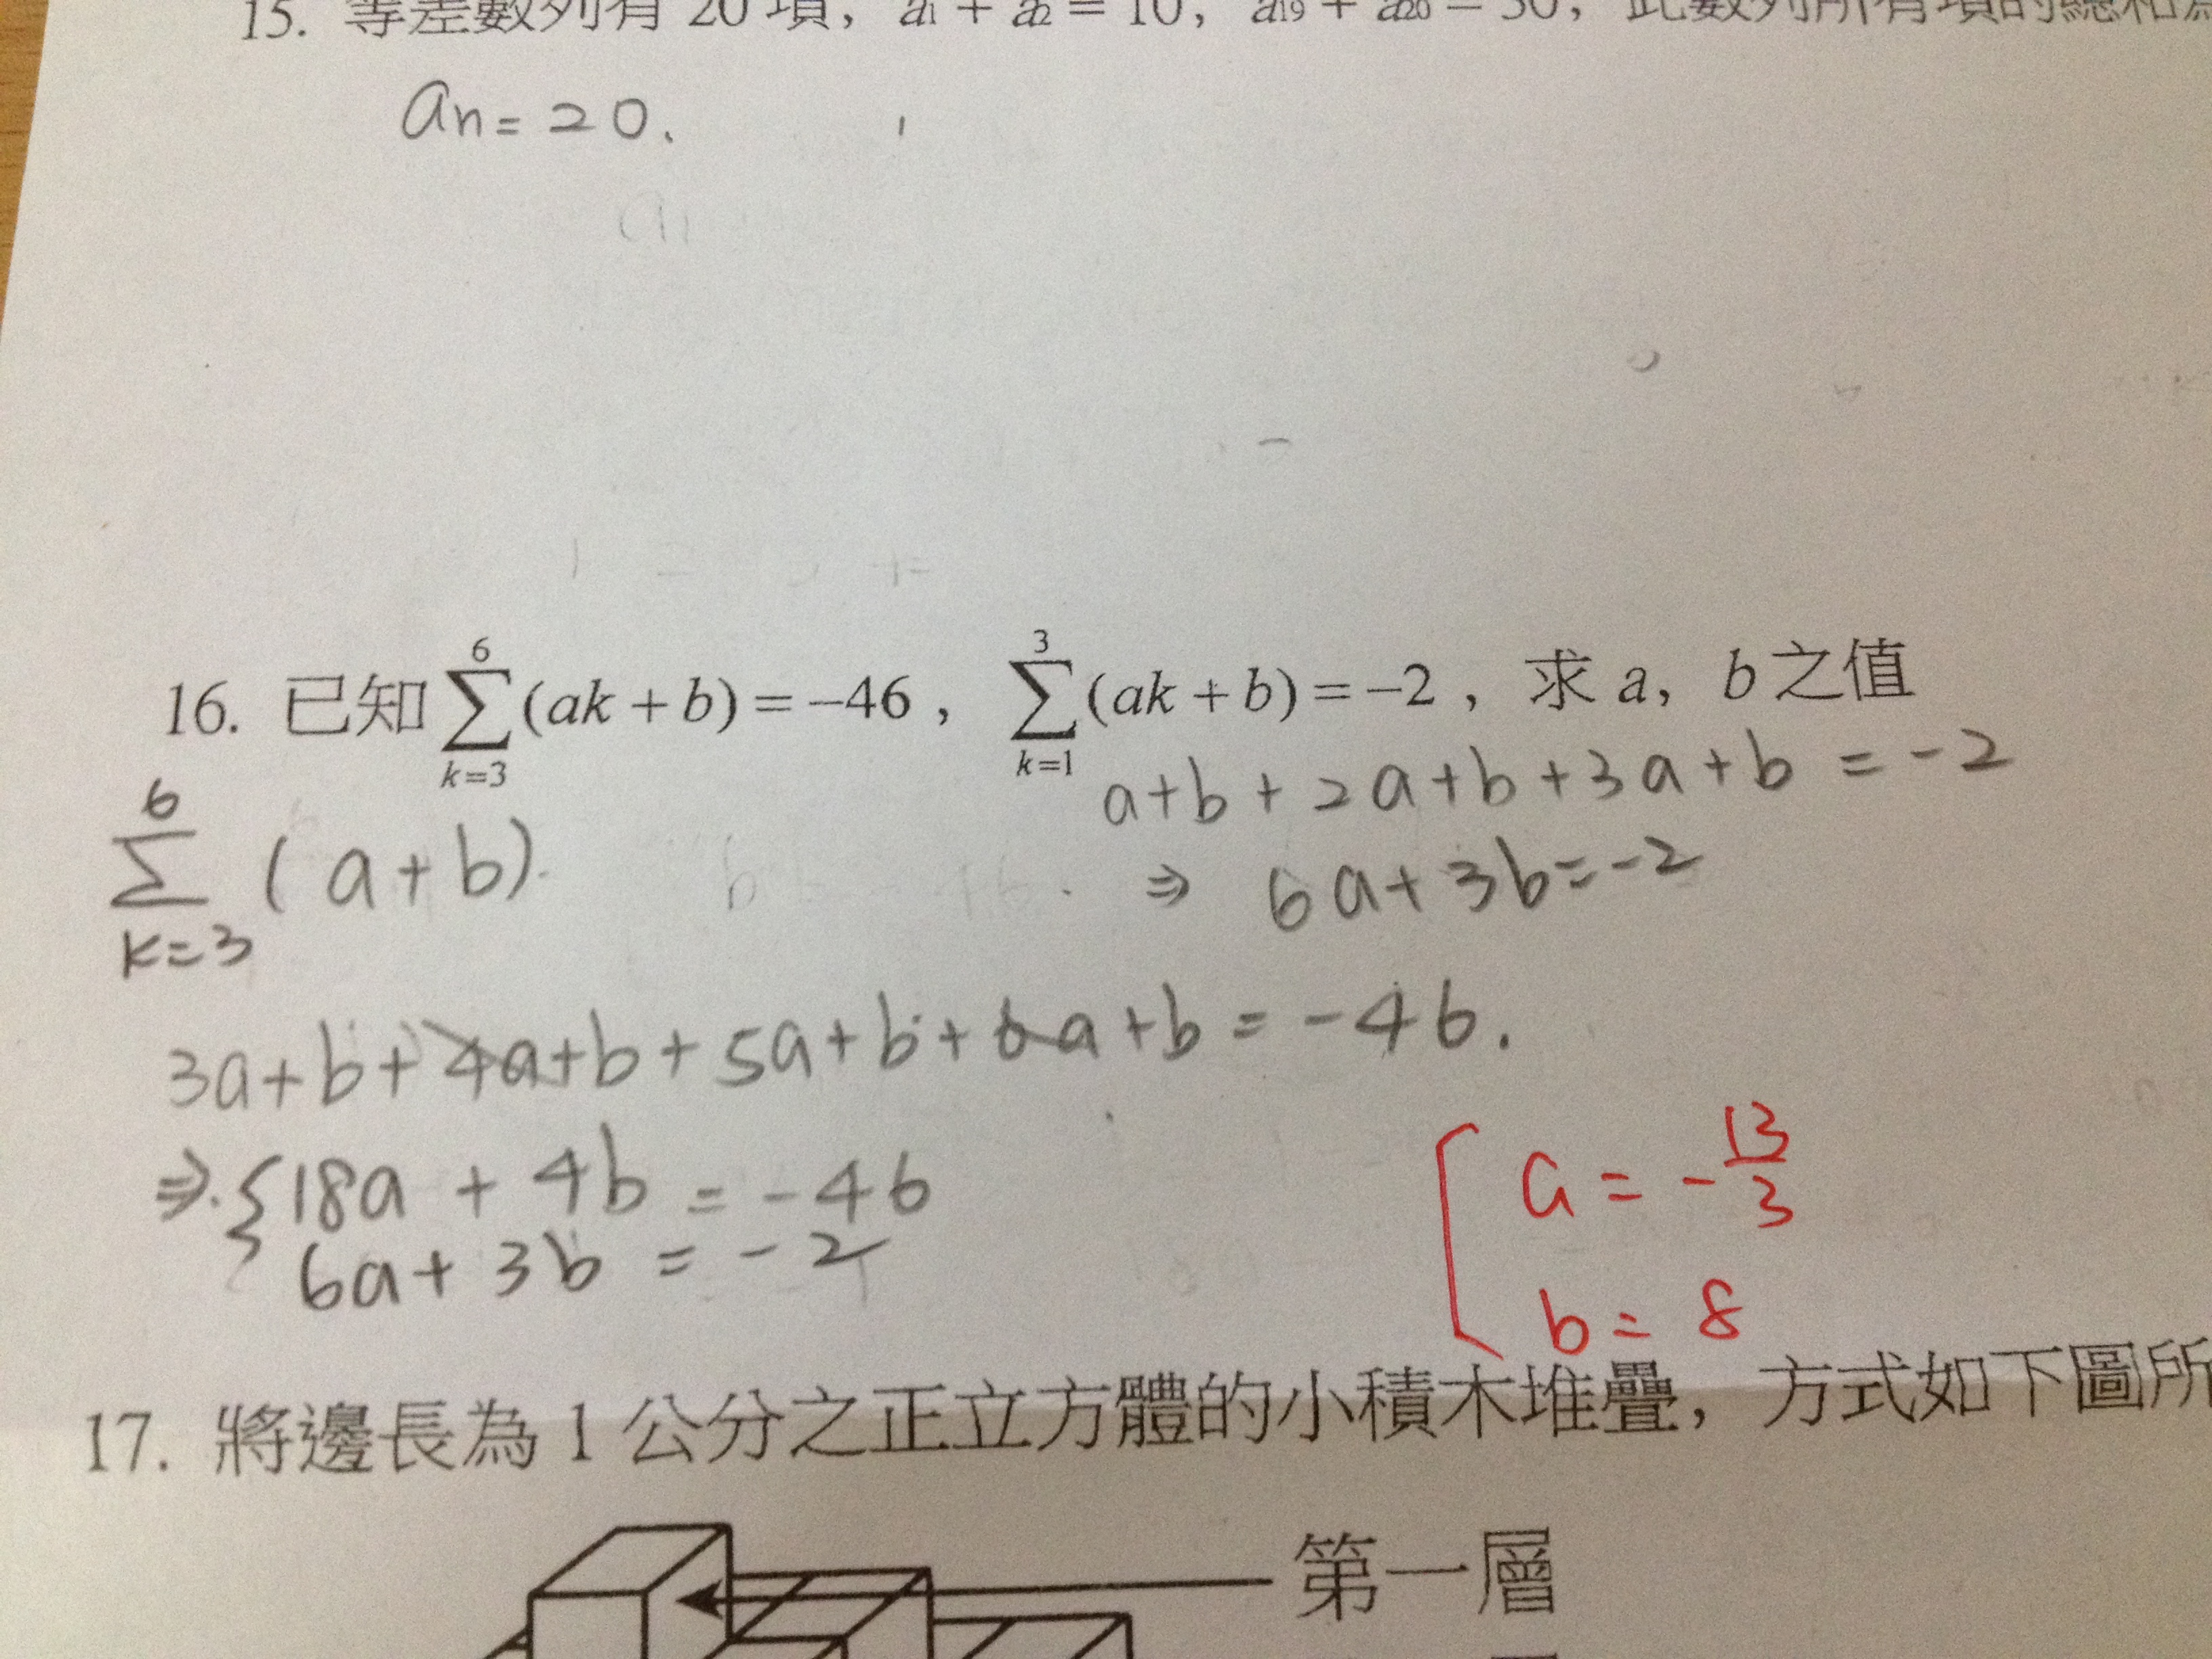 15. 等差數列有 20 項, a₁ + a₂ = 10, a₁₉ + a₂₀ = 30, 此數列所有項的總和為
an = 20.
16. 已知 ∑_{k=3}^{6} (ak + b) = −46, ∑_{k=1}^{3} (ak + b) = −2, 求 a, b 之值
a+b+2a+b+3a+b = -2
∑_{k=3}^{6} (a+b).
⇒ 6a+3b=-2
3a+b+4a+b+5a+b+6a+b = -46.
⇒ { 18a + 4b = -46
6a + 3b = -2
a = -13/3
b = 8
17. 將邊長為 1 公分之正立方體的小積木堆疊, 方式如下圖所
第一層